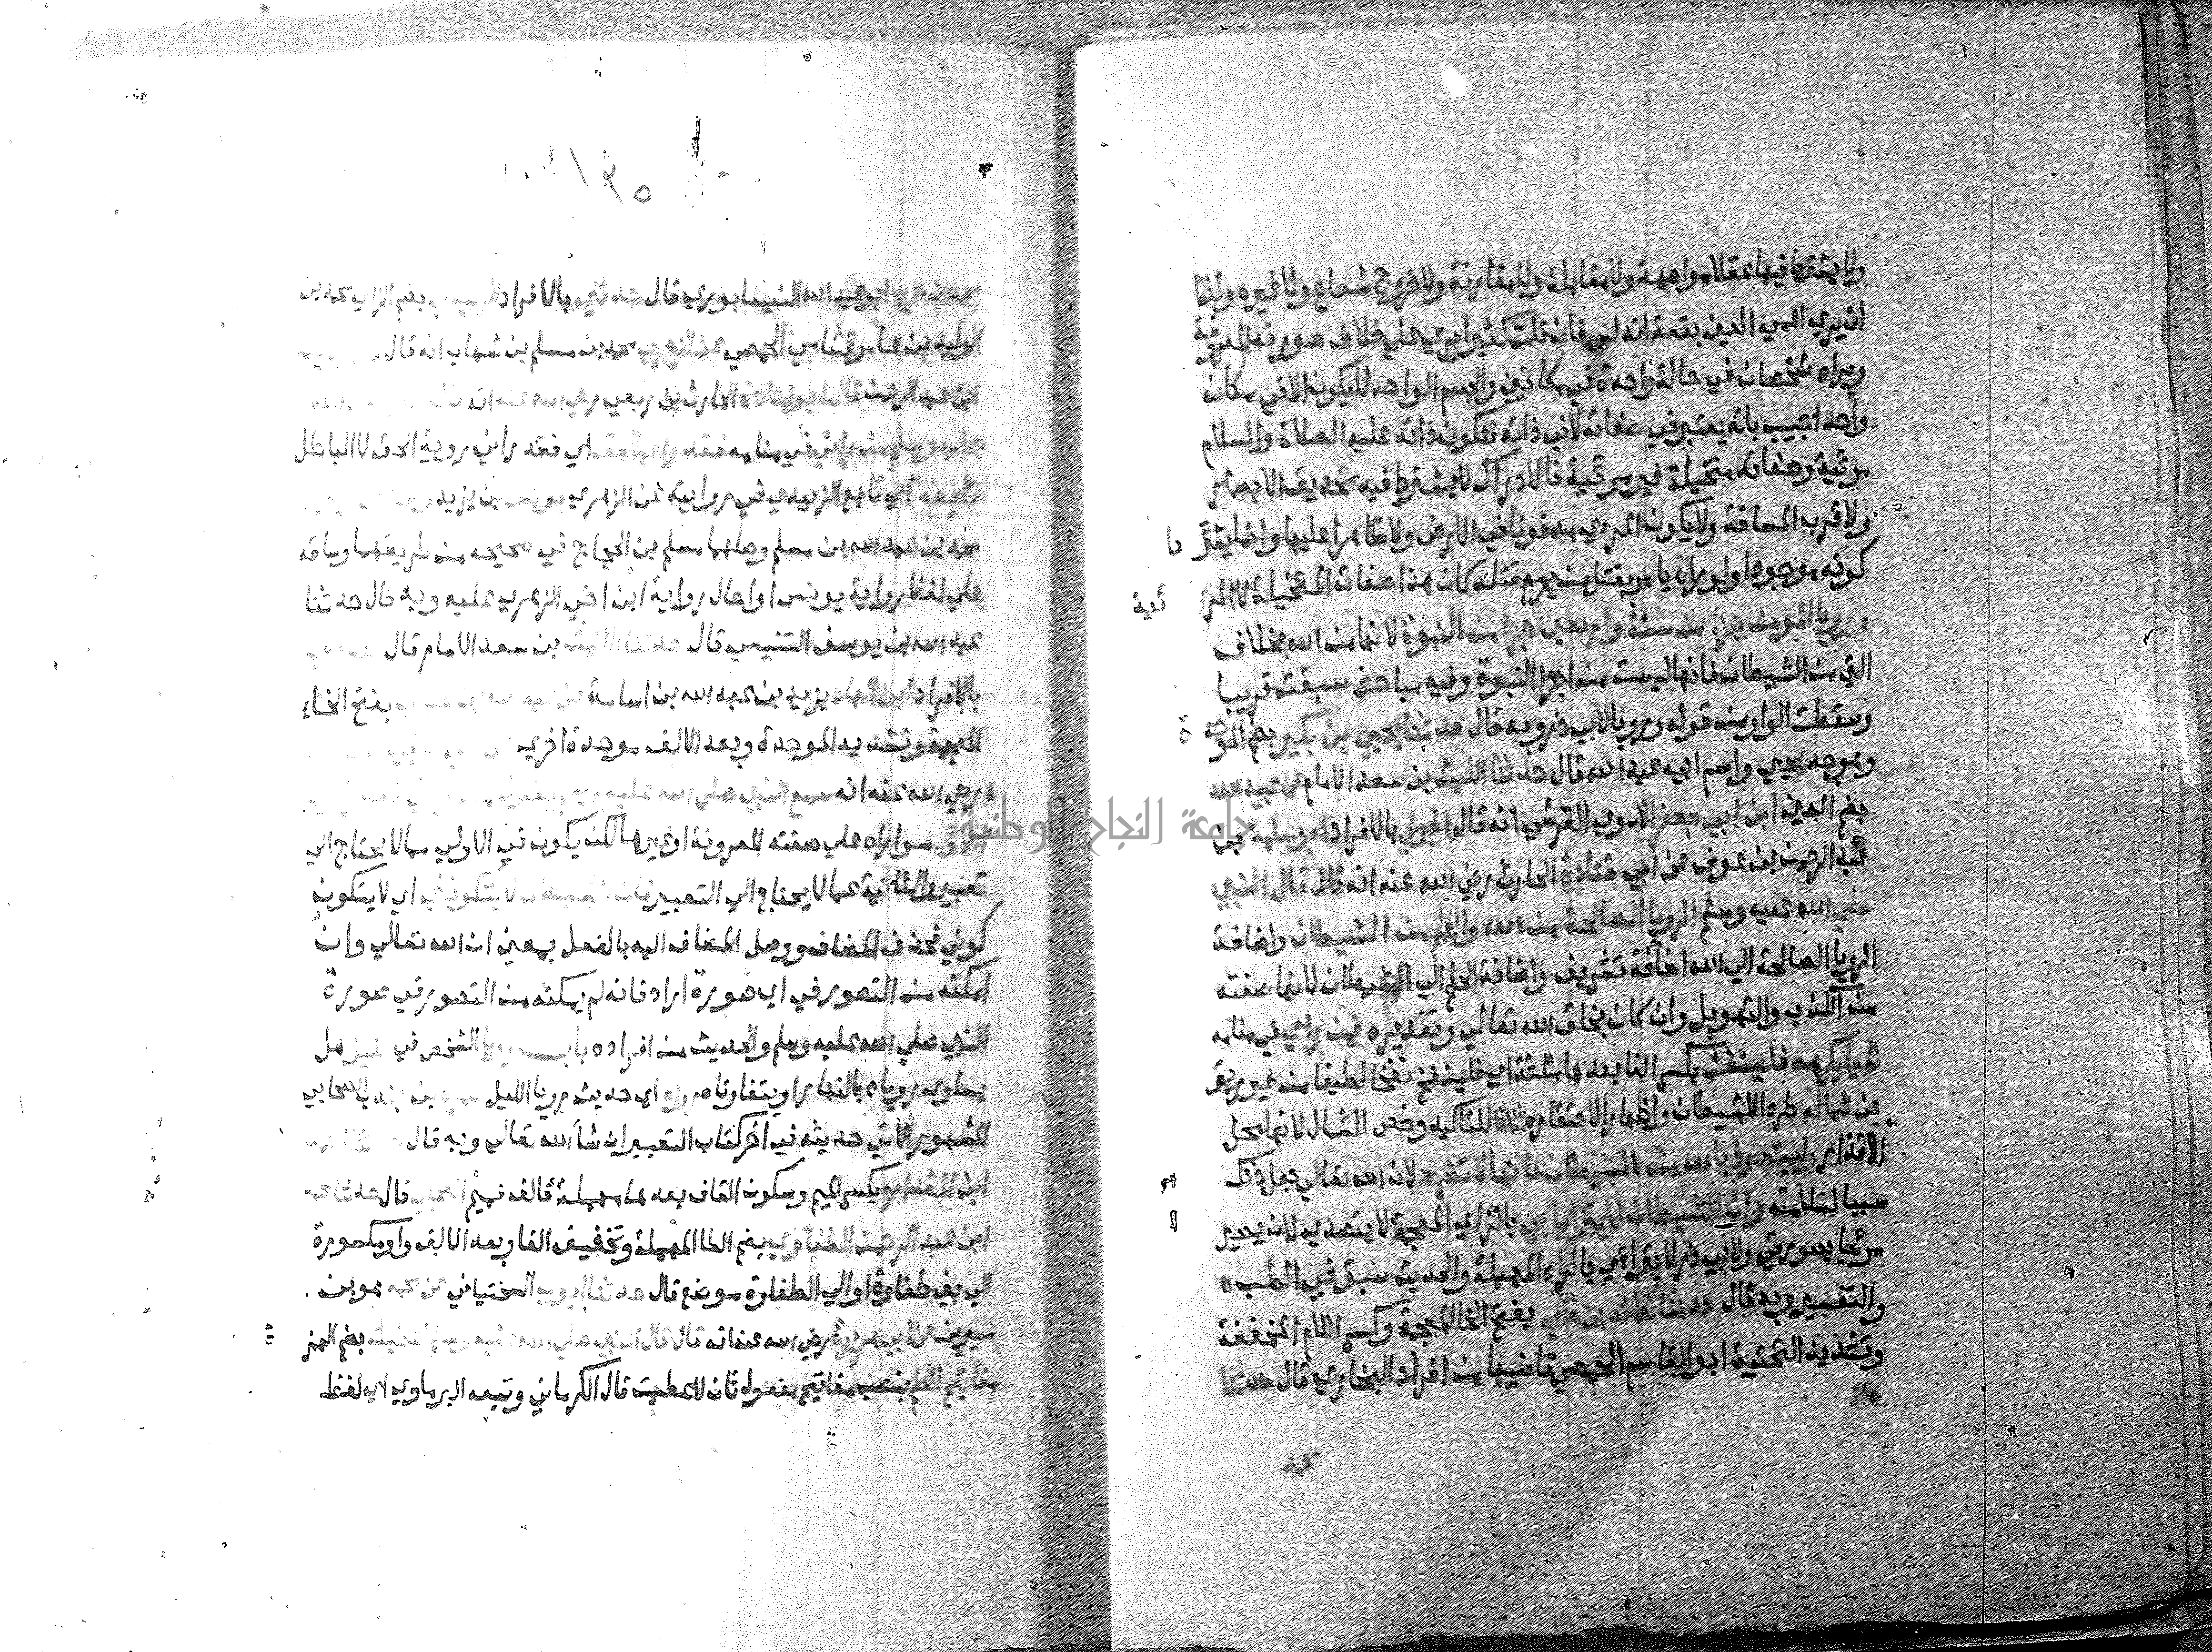 ولا يشترط فيها عقلا مواجهة ولا مقابلة ولا مقارنة ولا خروج شعاع ولا غيره ولذا
ان يري اعمي الصين بقعة اندلس فان قلت كثيرا يري علي خلاف صورته المعروفة
ويراه شخصان في حالة واحدة في مكانين والجسم الواحد لا يكون الا في مكان
واحد اجيب بانه يعتبر في صفاته لا في ذاته فتكون ذاته عليه الصلاة والسلام
مرئية وصفاته متخيلة غير مرئية فالادراك لا يشترط فيه تحديق الابصار
ولا قرب المسافة ولا يكون المرئي مدفونا في الارض ولا ظاهرا عليها وانما يشتر ط
كونه موجودا ولو راه يامر بقتل من يحرم قتله كان هذا من صفاته المتخيلة لا المر ئية
ورويا المومن جزء من ستة واربعين جزا من النبوة لانها من الله بخلاف
التي من الشيطان فانها ليست من اجزا النبوة وفيه مباحث سبقت قريبا
وسقطت الواو من قوله ورويا لابي ذر وبه قال حدثنا يحيي بن بكير بضم الموحدة
وهو جد يحيي واسم ابيه عبد الله قال حدثنا الليث بن سعد الامام عن عبيد الله
بضم العين ابن ابي جعفر الاموي القرشي انه قال اخبرني بالافراد ابو سلمة بن
عبد الرحمن بن عوف عن ابي قتادة الحارث رضي الله عنه انه قال قال النبي
صلي الله عليه وسلم الرويا الصالحة من الله والحلم من الشيطان واضافة
الرويا الصالحة الي الله اضافة تشريف واضافة الحلم الي الشيطان لانها صفته
من الكذب والتهويل وان كان بخلق الله تعالي وتقديره فمن راي في منامه
شيا يكرهه فلينفث بكسر الفا بعدها مثلثة اي فلينفخ نفخا لطيفا من غير ريق
عن شماله طردا للشيطان واظهارا لاحتقاره ثلاثا للتاكيد وخص الشمال لانها محل
الاقذار وليتعوذ بالله من الشيطان فانها لا تضره لان الله تعالي جعل ذلك
سببا لسلامته وان الشيطان لا يتزايا بي بالزاي المعجمة لا يتصدي لان يصير
مرئيا بصورتي ولابي ذر لا يترااي بالراء المهملة والحديث سبق في الطب
والتفسير وبه قال حدثنا خالد بن خلي بفتح الخا المعجمة وكسر اللام المخففة
وتشديد التحتية ابو القاسم الحمصي قاضيها من افراد البخاري قال حدثنا
محمد
محمد بن حرب ابو عبد الله النيسابوري قال حدثني بالافراد بضم الزاي محمد بن
الوليد بن عامر الشامي الحمصي عن الزهري محمد بن مسلم بن شهاب انه قال
ابن عبد الرحمن قال ابو قتادة الحارث بن ربعي رضي الله عنه انه
عليه وسلم من راني في منامه فقد راي الحق اي فقد راني روية الحق لا الباطل
تابعه اي تابع الزبيدي في روايته عن الزهري يونس بن يزيد
محمد بن عبد الله بن مسلم وصلهما مسلم بن الحجاج في صحيحه من طريقهما وساقه
علي لفظ رواية يونس واحال رواية ابن اخي الزهري عليه وبه قال حدثنا
عبد الله بن يوسف التنيسي قال حدثنا الليث بن سعد الامام قال
بالافراد ابن الهاد يزيد بن عبد الله بن اسامة بفتح الخاء
المعجمة وتشديد الموحدة وبعد الالف موحدة اخري
رضي الله عنه انه سمع النبي صلي الله عليه وسلم
الحق سوا راه علي صفته المعروفة او غيرها لكن يكون في الاولي مما لا يحتاج الي
تعبير والثانية مما لا يحتاج الي التعبير فان الشيطان لا يتكونني اي لا يتكون
كوني فحذف المضاف ووصل المضاف اليه بالفعل يعني ان الله تعالي وان
امكنه من التصور في اي صورة اراد فانه لم يمكنه من التصور في صورة
النبي صلي الله عليه وسلم والحديث من افراده باب الشخص في الليل هل
يساوي روياه بالنهار او يتفاوتان رواه اي حديث رويا الليل سمرة بن جندب الصحابي
المشهور الاتي حديثه في اخر كتاب التعبير ان شا الله تعالي وبه قال
ابن المقدام بكسر الميم وسكون القاف بعدها مهملة فالف فميم العجلي قال حدثنا محمد
ابن عبد الرحمن الطفاوي بضم الطا المهملة وتخفيف الفا وبعد الالف واو مكسورة
الي بني طفاوة او الي الطفاوة موضع قال حدثنا ايوب السختياني عن محمد هو بن
سيرين عن ابي هريرة رضي الله عنه انه قال قال النبي صلي الله عليه وسلم اعطيت بضم الهمز ة
مفاتيح الكلم بنصب مفاتيح مفعول ثان لاعطيت قال الكرماني وتبعه البرماوي اي لفظ
جامعة النجاح الوطنية